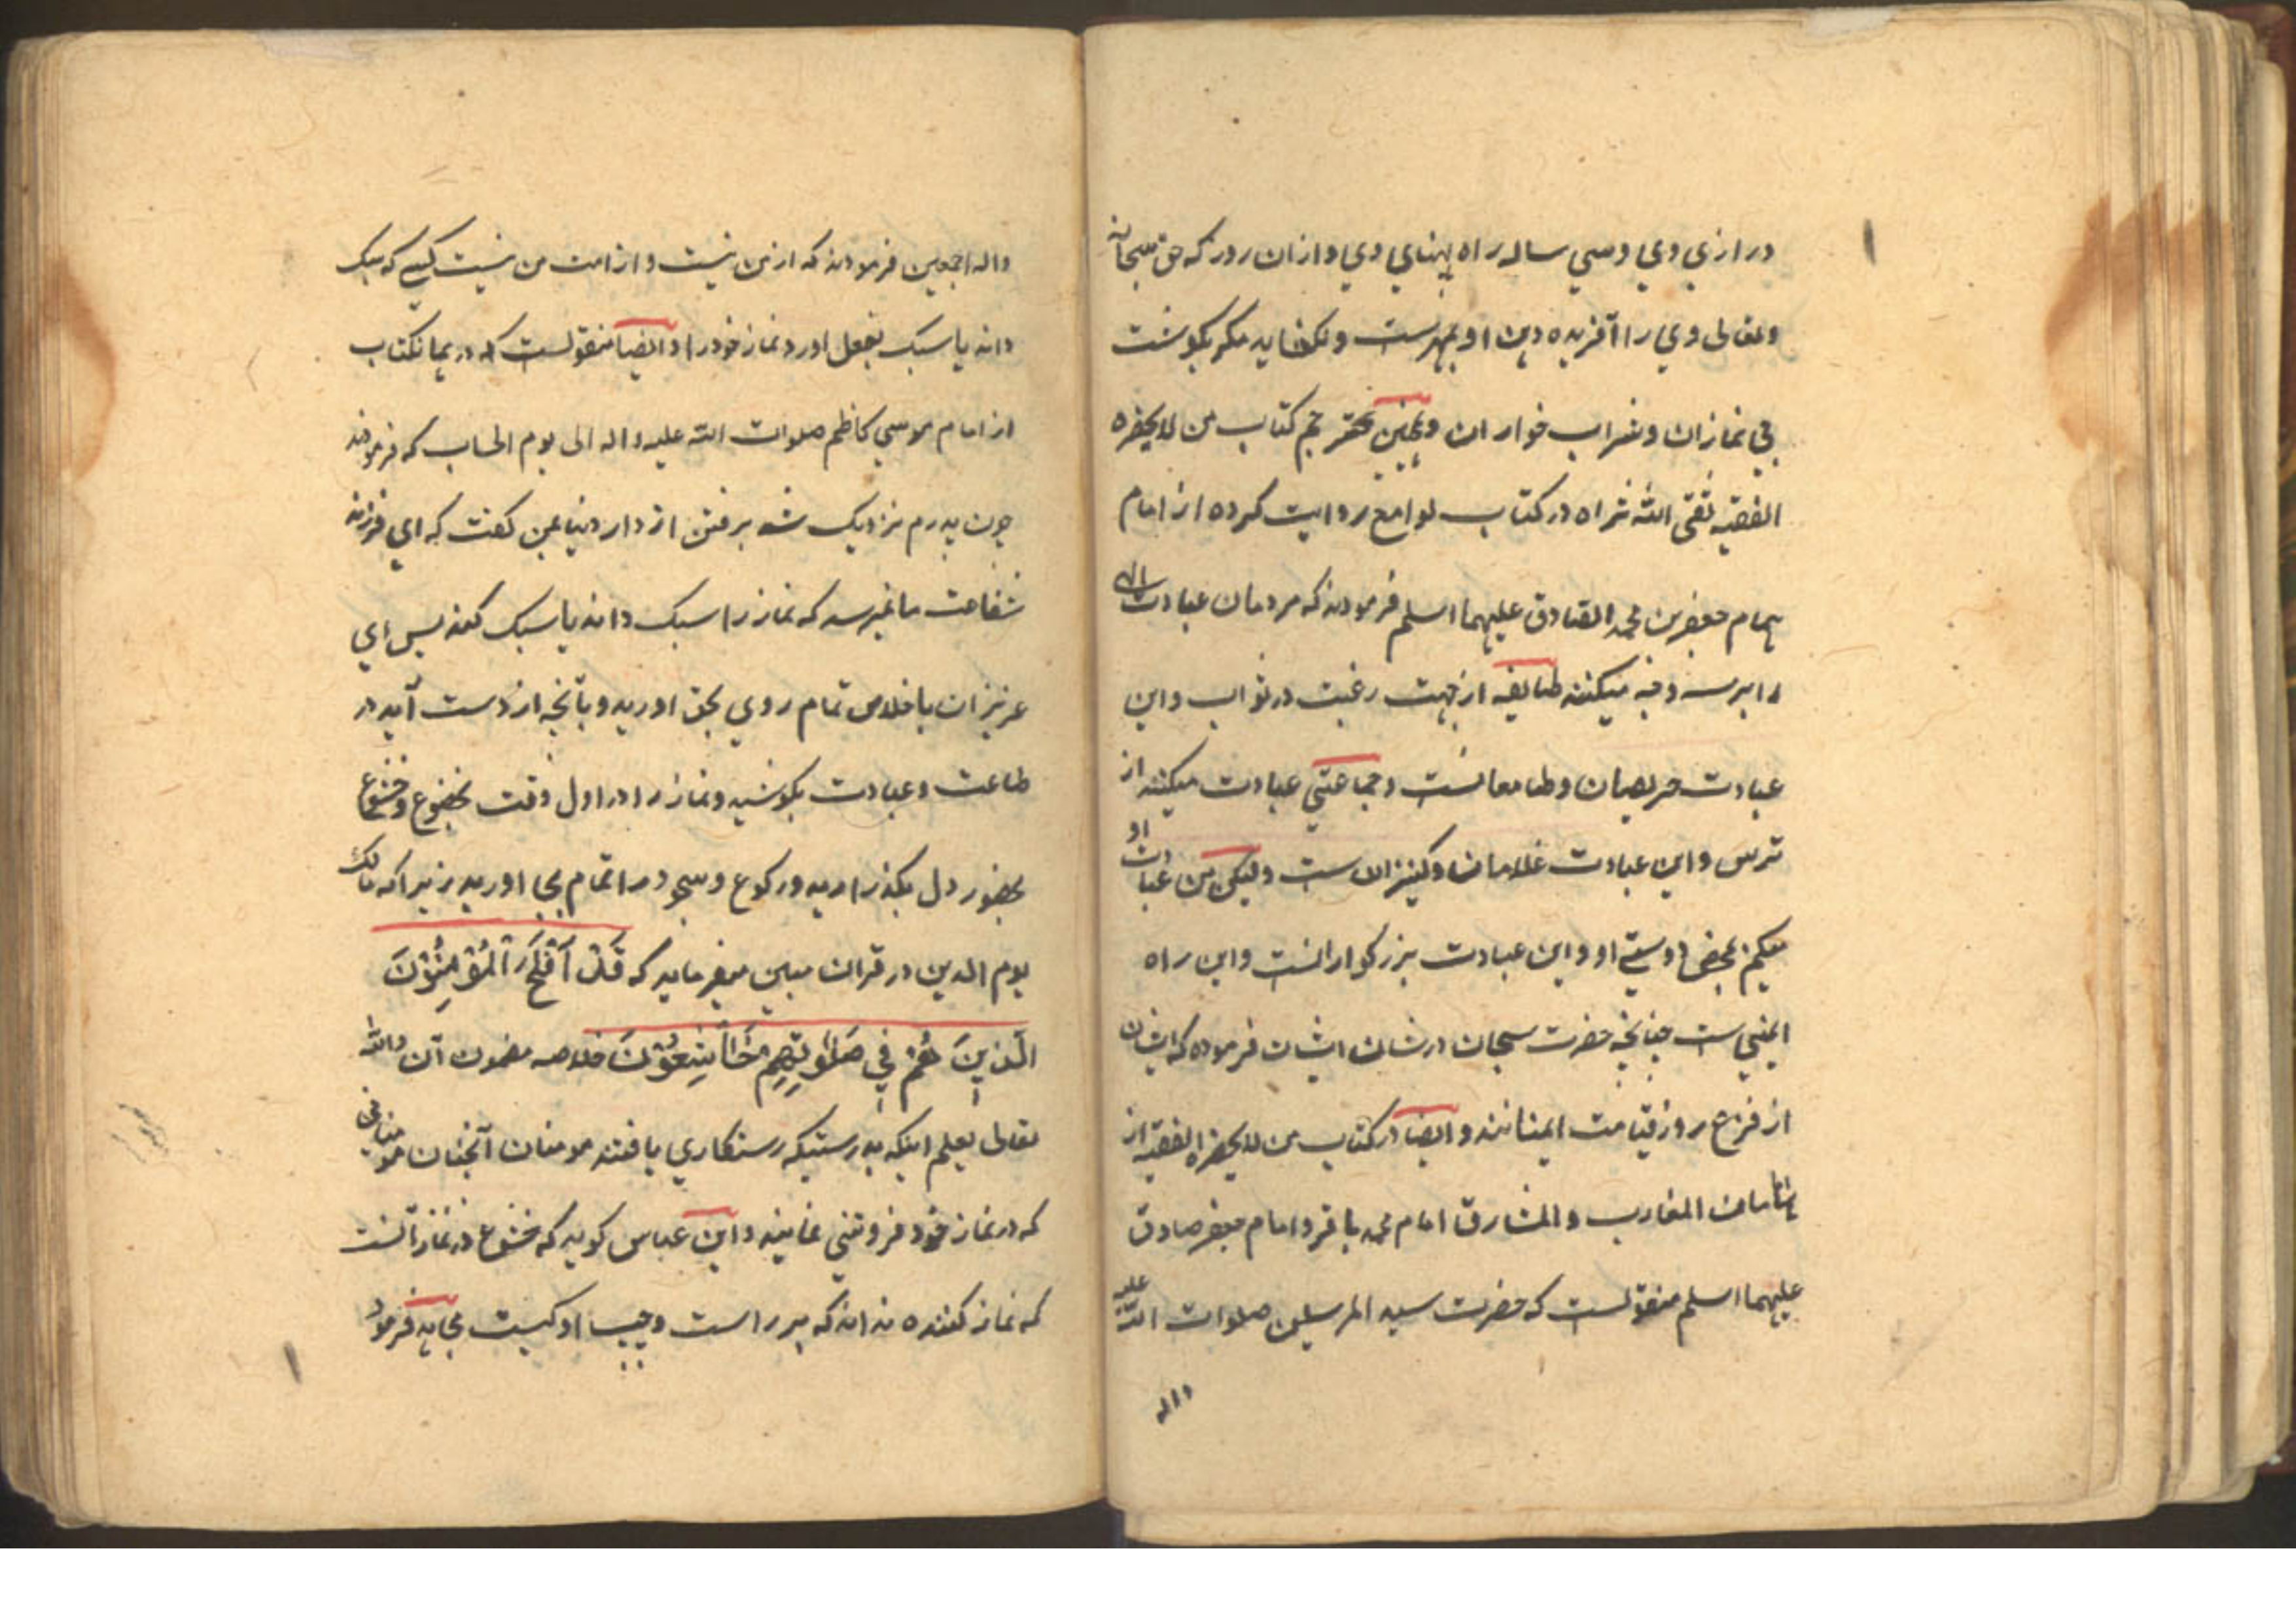 درازي وي وسي ساله راه پهناي وي وازان روز كه حق سبحانه
وتعالى وي را آفريده دهن او بمهرست ونكشايد مكر بگوشت
بي نمازان وشراب خواران وهمچنين محقر حجم كتاب من لايحضره
الفقيه تقى الله ثراه در كتاب لوامع روايت كرده از امام
همام جعفر بن محمد الصادق عليهما السلم فرمودند كه مردمان عبادت الهى
را بر سه وجه ميكنند طايفه از جهت رغبت در ثواب واين
عبادت حريصان وطامعانست وجماعتي عبادت ميكنند از
ترس واين عبادت غلامان وكنيزانست وليكن من عبادت او
ميكنم بمحض دوستي او واين عبادت بزركوارانست واين راه
ايمنيست چنانچه حضرت سبحان در شان ايشان فرموده كه ايشان
از فزع روز قيامت ايمنانند وايضا در كتاب من لايحضره الفقيه از
امامان المغارب والمشارق امام محمد باقر وامام جعفر صادق
عليهما السلم منقولست كه حضرت سيد المرسلين صلوات الله عليه
واله
واله اجمعين فرمودند كه از من نيست واز امت من نيست كسي كه سبك
داند يا سبك بفعل اورد نماز خود را وايضا منقولست كه در همانكتاب
از امام موسي كاظم صلوات الله عليه واله الى يوم الحساب كه فرمودند
چون پدرم نزديك شد برفتن از دار دنيا بمن كفت كه اي فرزند
شفاعت ما نميرسد كه نماز را سبك داند يا سبك كند پس اي
عزيزان باخلاص تمام روي بحق اوريد وبآنچه از دست آيد در
طاعت وعبادت بكوشيد ونماز را در اول وقت بخضوع وخشوع
بحضور دل بكذراريد وركوع وسجود را تمام بجا اوريد زيرا كه مالك
يوم الدين در قران مبين ميفرمايد كه قَدْ اَفْلَحَ الْمُؤْمِنُوْنَ
الَّذينَ هُمْ في صَلوٰتِهِمْ خَاشِعُوْنَ خلاصه مضمون آن والله
تعالى يعلم اينكه بدرستيكه رستكاري يافتند مومنان آنچنان مومناني
كه در نماز خود فروتني نمايند وابن عباس كويد كه خشوع در نماز آنست
كه نماز كننده نداند كه بر راست وچپ او كيست مجاهد فرمود